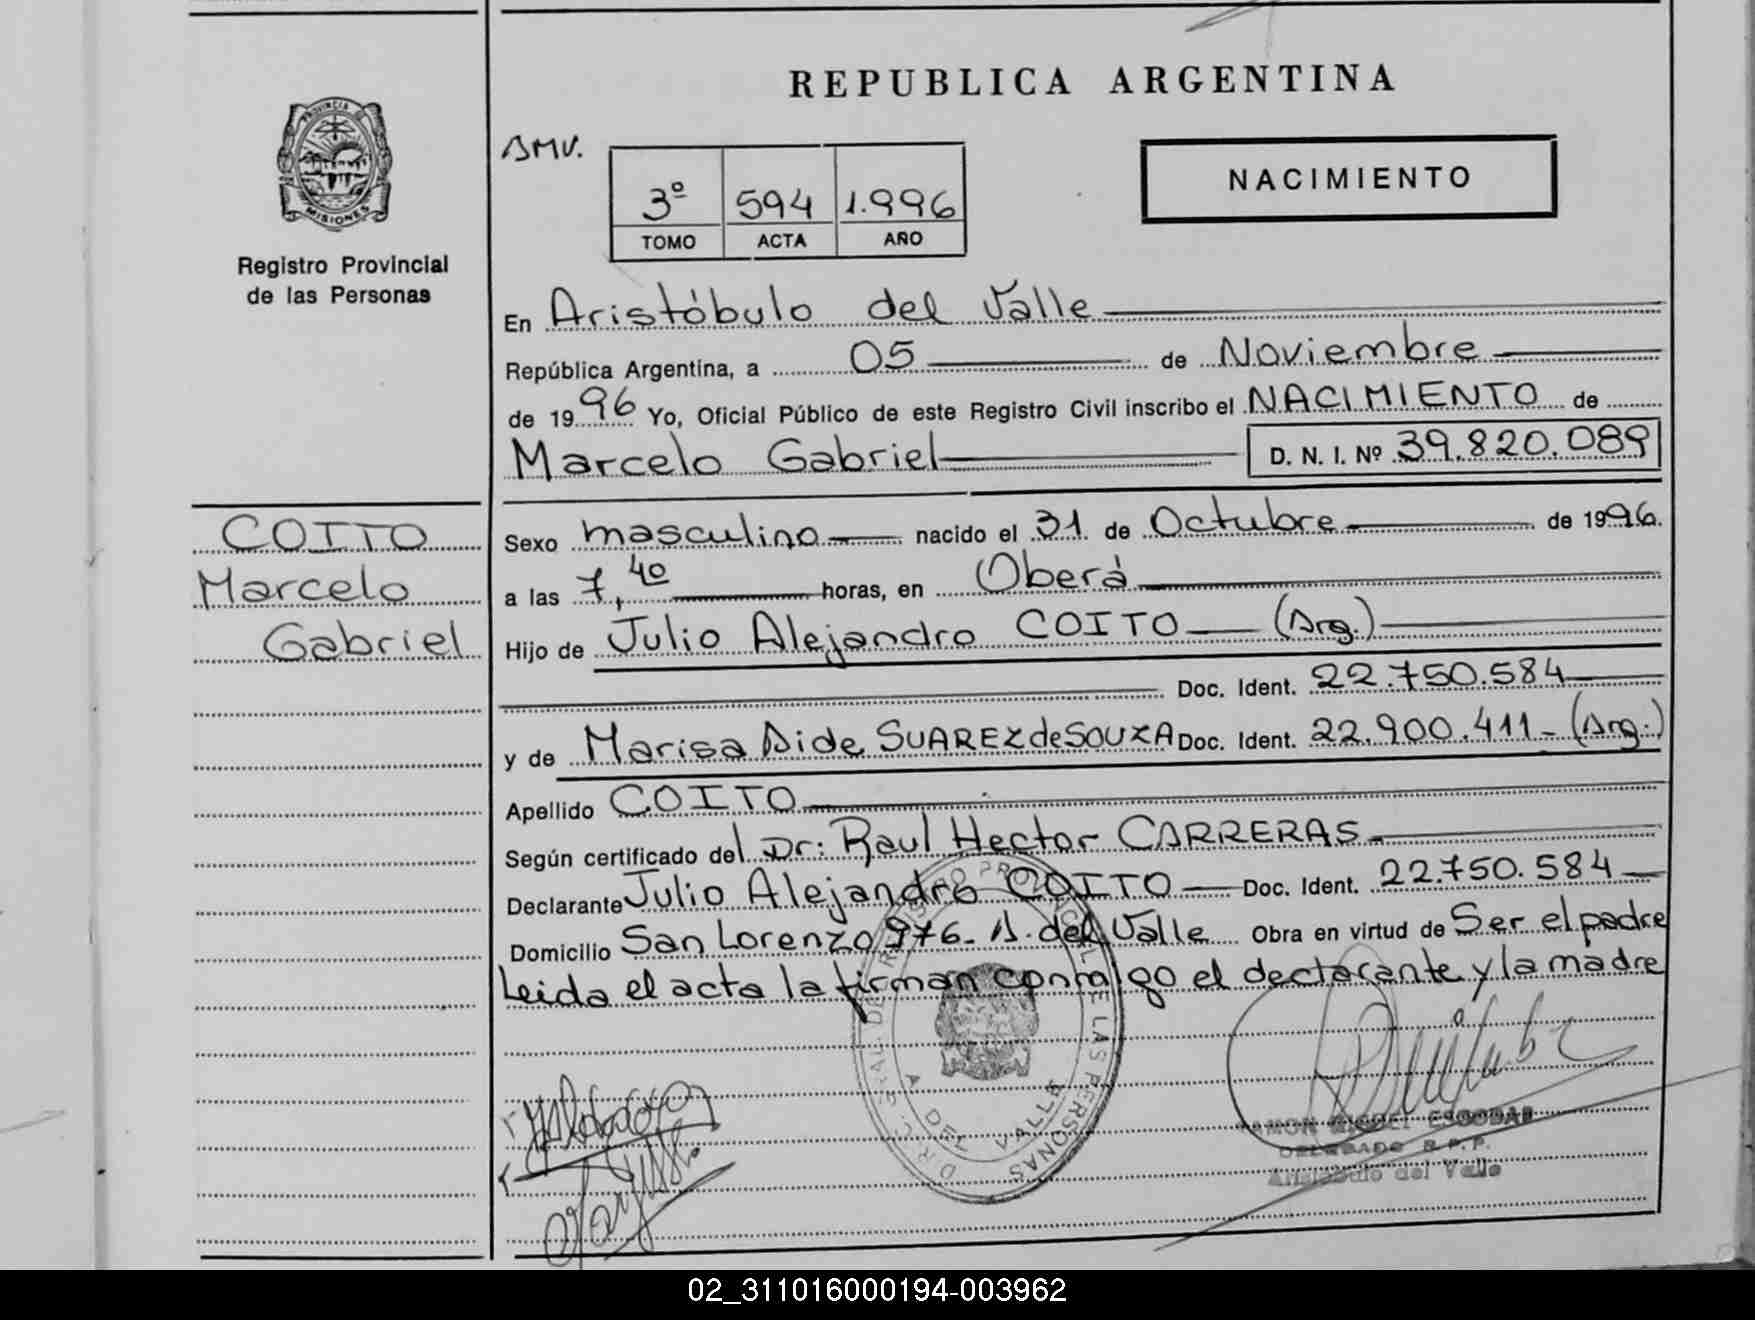 REPUBLICA ARGENTINA
PROVINCIA DE
MISIONES
Registro Provincial
de las Personas
AMV.
3º 594 1.996
TOMO ACTA AÑO
NACIMIENTO
En Aristóbulo del Valle
República Argentina, a 05 de Noviembre
de 1996 Yo, Oficial Público de este Registro Civil inscribo el NACIMIENTO de
Marcelo Gabriel D. N. I. Nº 39.820.089
COITO
Marcelo
Gabriel
Sexo masculino nacido el 31 de Octubre de 1996.
a las 7,40 horas, en Oberá
Hijo de Julio Alejandro COITO (Arg.)
Doc. Ident. 22.750.584
y de Marisa Aide SUAREZ de SOUZA Doc. Ident. 22.900.411- (Arg.)
Apellido COITO
Según certificado del Dr: Raul Hector CARRERAS
Declarante Julio Alejandro COITO Doc. Ident. 22.750.584
Domicilio San Lorenzo 976- A. del Valle Obra en virtud de Ser el padre
Leida el acta la firman conmigo el declarante y la madre
REGISTRO PROVINCIAL DE LAS PERSONAS
A DEL VALLE
RAMON MIGUEL ESCOBAR
DELEGADO R.P.P.
Aristóbulo del Valle
02_311016000194-003962